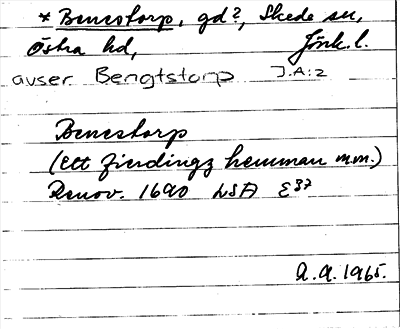 * Benestorp, gd?, Skede sn,
Östra hd, Jönk. l.
avser Bengtstorp J.A:2
Benestorp
(ett fierdingz hemman m.m.)
Renov. 1690 LSA E37
A.A. 1965.